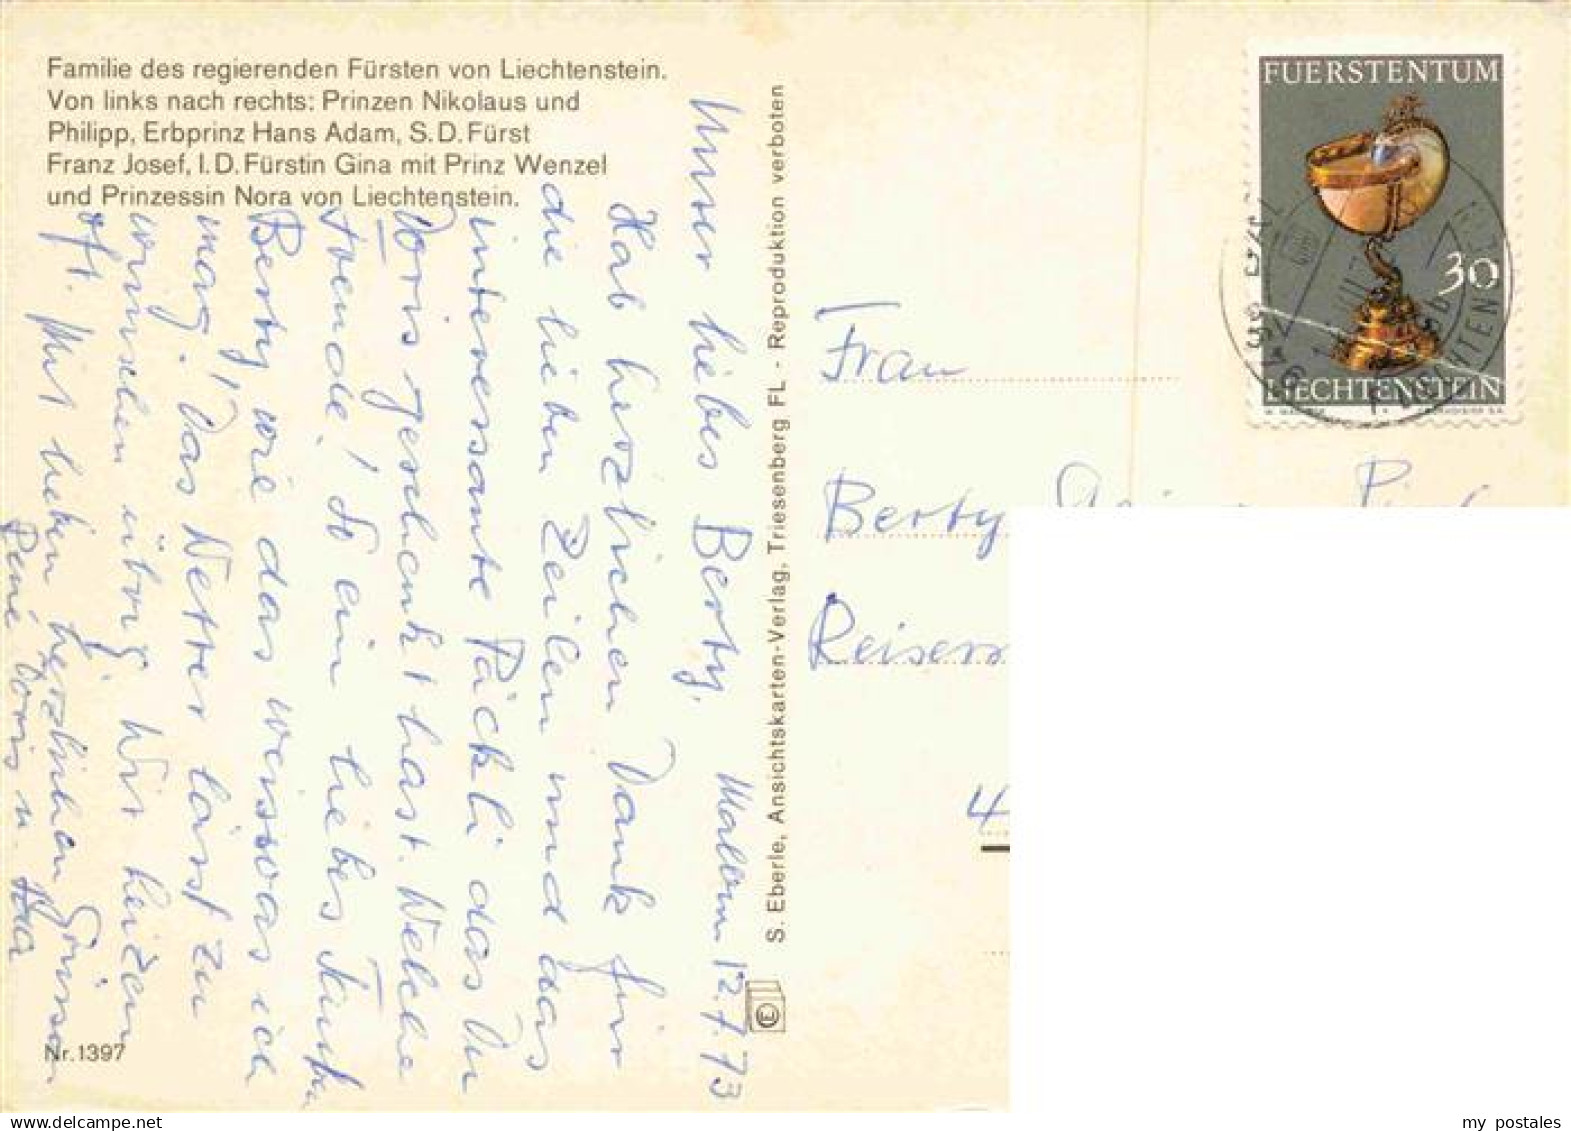 Familie des regierenden Fürsten von Liechtenstein.
Von links nach rechts: Prinzen Nikolaus und
Philipp, Erbprinz Hans Adam, S.D. Fürst
Franz Josef, I.D. Fürstin Gina mit Prinz Wenzel
und Prinzessin Nora von Liechtenstein.
Unser liebes Berty.
12.7.73
Hab herzlichen Dank für
die lieben Zeilen und das
interessante Päckli das Du
Doris geschenkt hast. Welche
Freude! So ein liebes
Berty, wie das weisswas ich
mag! Das Wetter lässt zu
wünschen übrig. Wir heizen
oft. Mit lieben herzlichen Grüssen
René Doris u.
Nr. 1397
S. Eberle, Ansichtskarten-Verlag, Triesenberg FL - Reproduktion verboten
FUERSTENTUM
30
LIECHTENSTEIN
Frau
Berty
4
my_postales